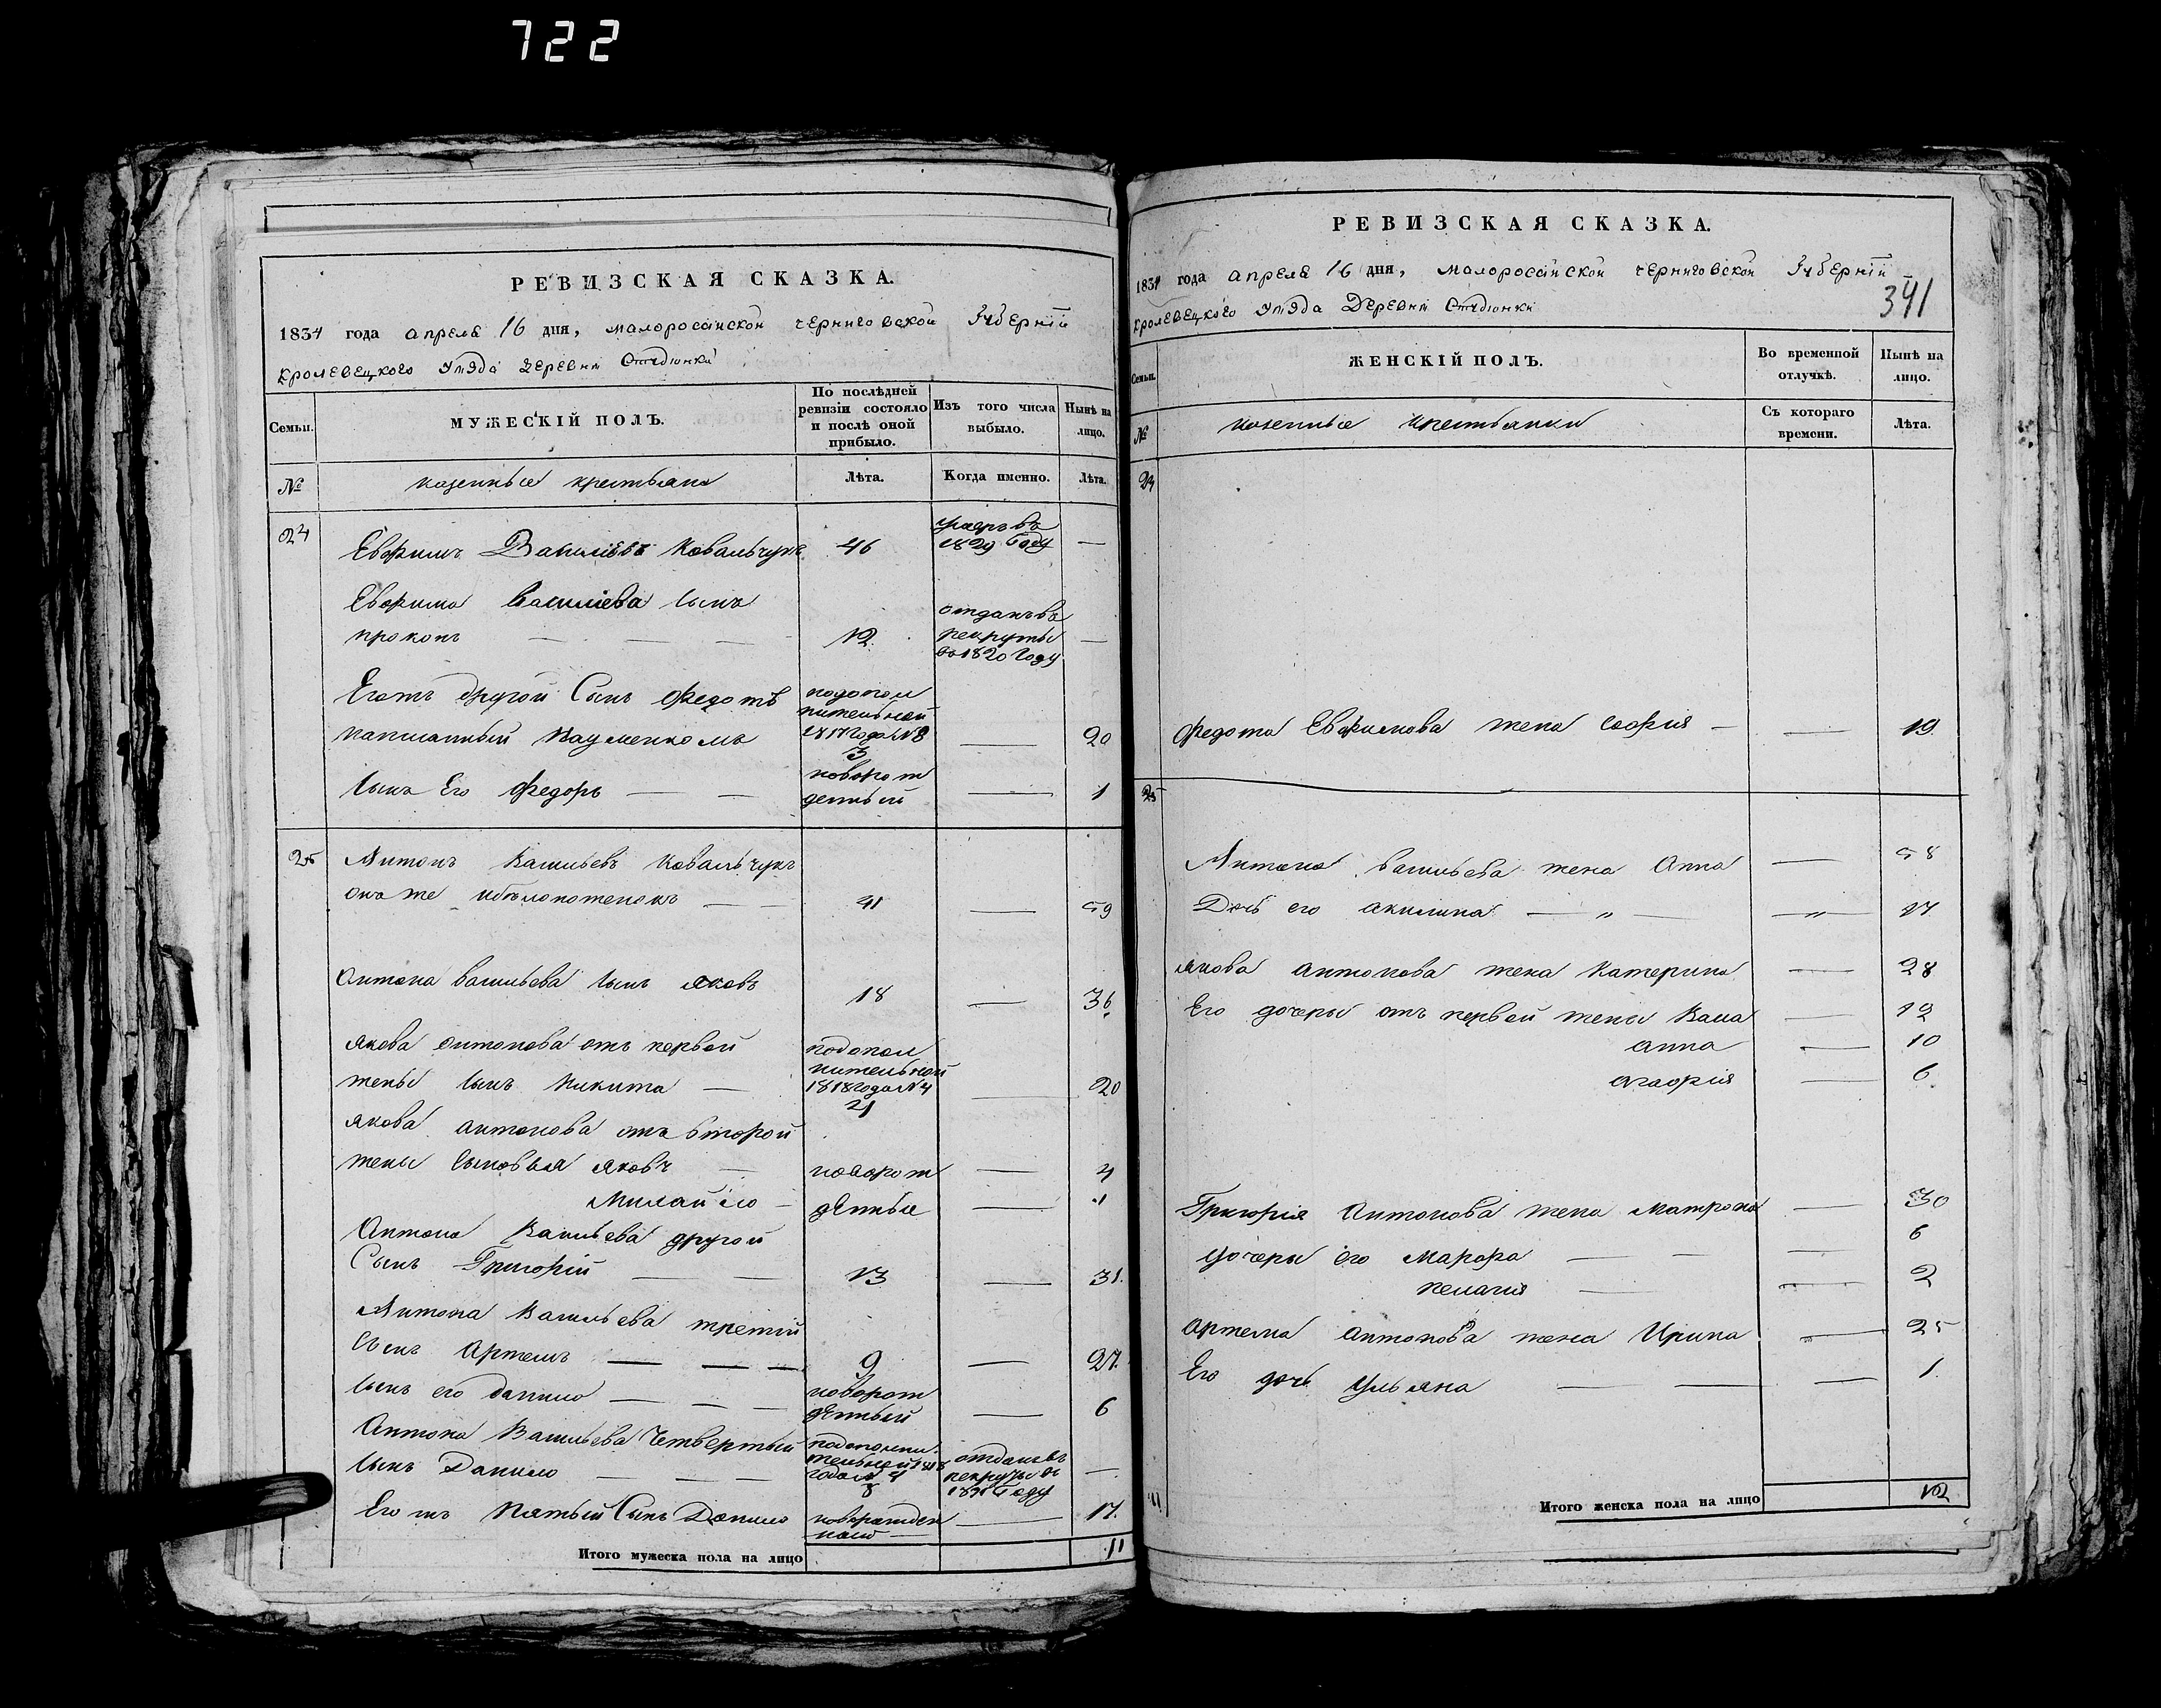 722
РЕВИЗСКАЯ СКАЗКА.
1834 года апреля 16 дня, малоросійской черниговской Губерніи
кролевецкого уезда деревни
Семьи.
МУЖЕСКІЙ ПОЛЪ.
По послѣдней ревизіи состояло и послѣ оной прибыло.
Изъ того числа выбыло.
Нынѣ на лицо.
№
казенные крестьяне
Лѣта.
Когда именно.
Лѣта.
24
Евфимъ Василіевъ Ковальчукъ 46 умеръ въ 1829 Году —
Евфима Василіева сынъ
прокопъ — — — 12. отданъ въ рекруты въ 1820 Году —
Егожъ другой Сынъ Федотъ
написанный Науменкомъ
подополнительной 1817 года №8
3
— 20
сынъ Его Федоръ — — новорожденный — 1
25
Антонъ Васильевъ Ковальчукъ
онъ же 41 — 59
Антона васильева сынъ яковъ 18 — 36
якова антонова отъ первой
жены сынъ Никита — подополнительной 1818 года №4
21
— 20
якова антонова отъ второй
жены сыновья яковъ — новорож — 4
Михайло — денные — 1
Антона Васильева другой
Сынъ Григорій — — 13 — 31.
Антона Васильева третій
сынъ Артемъ — — — 9 — 27.
сынъ его данило — — — новорожденный — 6
Антона Васильева Четвертый
сынъ Данило — — — отданъ въ рекруты въ Году —
Его жъ Пятый Сынъ Данило — 17.
Итого мужеска пола на лицо 11
РЕВИЗСКАЯ СКАЗКА.
1834 года апреля 16 дня, малоросійской черниговской Губерніи
341
кролевецкого уезда Деревни
Семьи.
ЖЕНСКІЙ ПОЛЪ.
Во временной отлучкѣ.
Нынѣ на лицо.
№
казенные крестьянки
Съ котораго времени.
Лѣта.
24
Федота Евфимова жена софія — — 19.
25
Антона васильева жена Анна — 58
Дочь его акилина — „ — — „ — 17
якова антонова жена Катерина — 28
Его дочери отъ первой жены — 12
анна — 10
агафія — 6.
Григорія Антонова жена матрона — 30
дочери его Марфа — — — 6
пелагия — — 2
артема антонова жена Ирина — 25
Его дочь ульяна — — — 1.
Итого женска пола на лицо 12